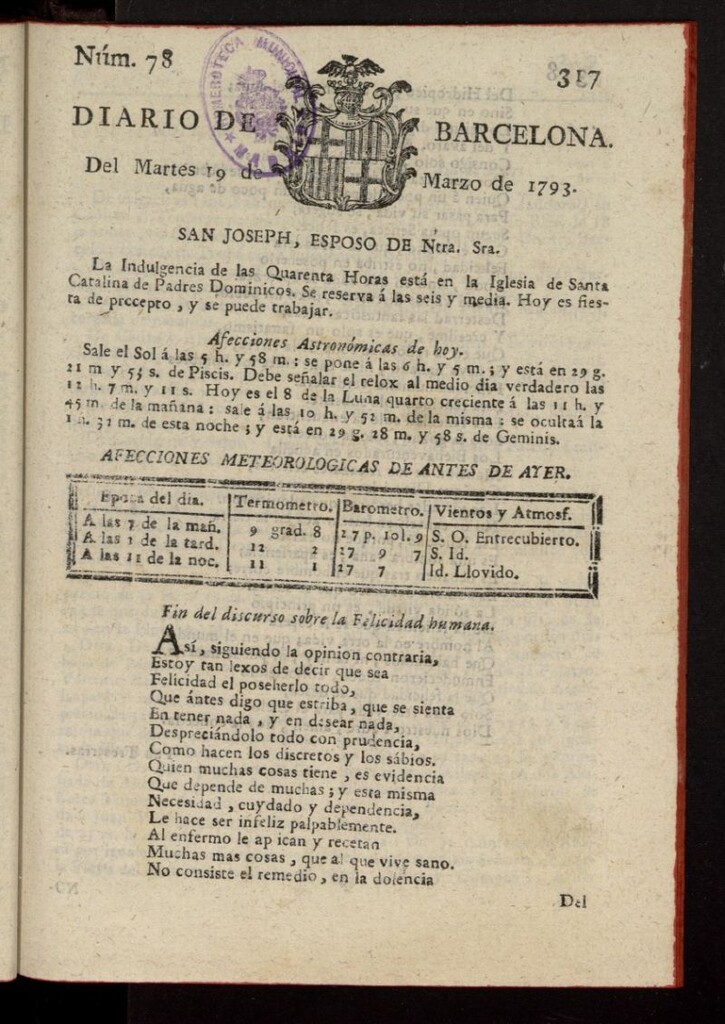 Núm. 78
317
DIARIO DE BARCELONA.
Del Martes 19 de Marzo de 1793.
SAN JOSEPH, ESPOSO DE Ntra. Sra.
La Indulgencia de las Quarenta Horas está en la Iglesia de Santa
Catalina de Padres Dominicos. Se reserva á las seis y media. Hoy es fies-
ta de precepto, y se puede trabajar.
Afecciones Astronómicas de hoy.
Sale el Sol á las 5 h. y 58 m.; se pone á las 6 h. y 5 m.; y está en 29 g.
21 m y 55 s. de Piscis. Debe señalar el relox al medio dia verdadero las
12 h. 7 m. y 11 s. Hoy es el 8 de la Luna quarto creciente á las 11 h. y
45 m. de la mañana: sale á las 10 h. y 52 m. de la misma: se ocultaá la
1 h. 32 m. de esta noche; y está en 29 g. 28 m. y 58 s. de Geminis.
AFECCIONES METEOROLOGICAS DE ANTES DE AYER.
Epoca del dia. Termometro. Barometro. Vientos y Atmosf.
A las 7 de la mañ. 9 grad. 8 27 p. 10l. 9 S. O. Entrecubierto.
A las 2 de la tard. 12 2 27 9 7 S. Id.
A las 11 de la noc. 11 1 27 7 Id. Llovido.
Fin del discurso sobre la Felicidad humana.
Así, siguiendo la opinion contraria,
Estoy tan lexos de decir que sea
Felicidad el poseherlo todo,
Que ántes digo que estriba, que se sienta
En tener nada, y en desear nada,
Despreciándolo todo con prudencia,
Como hacen los discretos y los sábios.
Quien muchas cosas tiene, es evidencia
Que depende de muchas; y esta misma
Necesidad, cuydado y dependencia,
Le hace ser infeliz palpablemente.
Al enfermo le ap ican y recetan
Muchas mas cosas, que al que vive sano.
No consiste el remedio, en la dolencia
Del